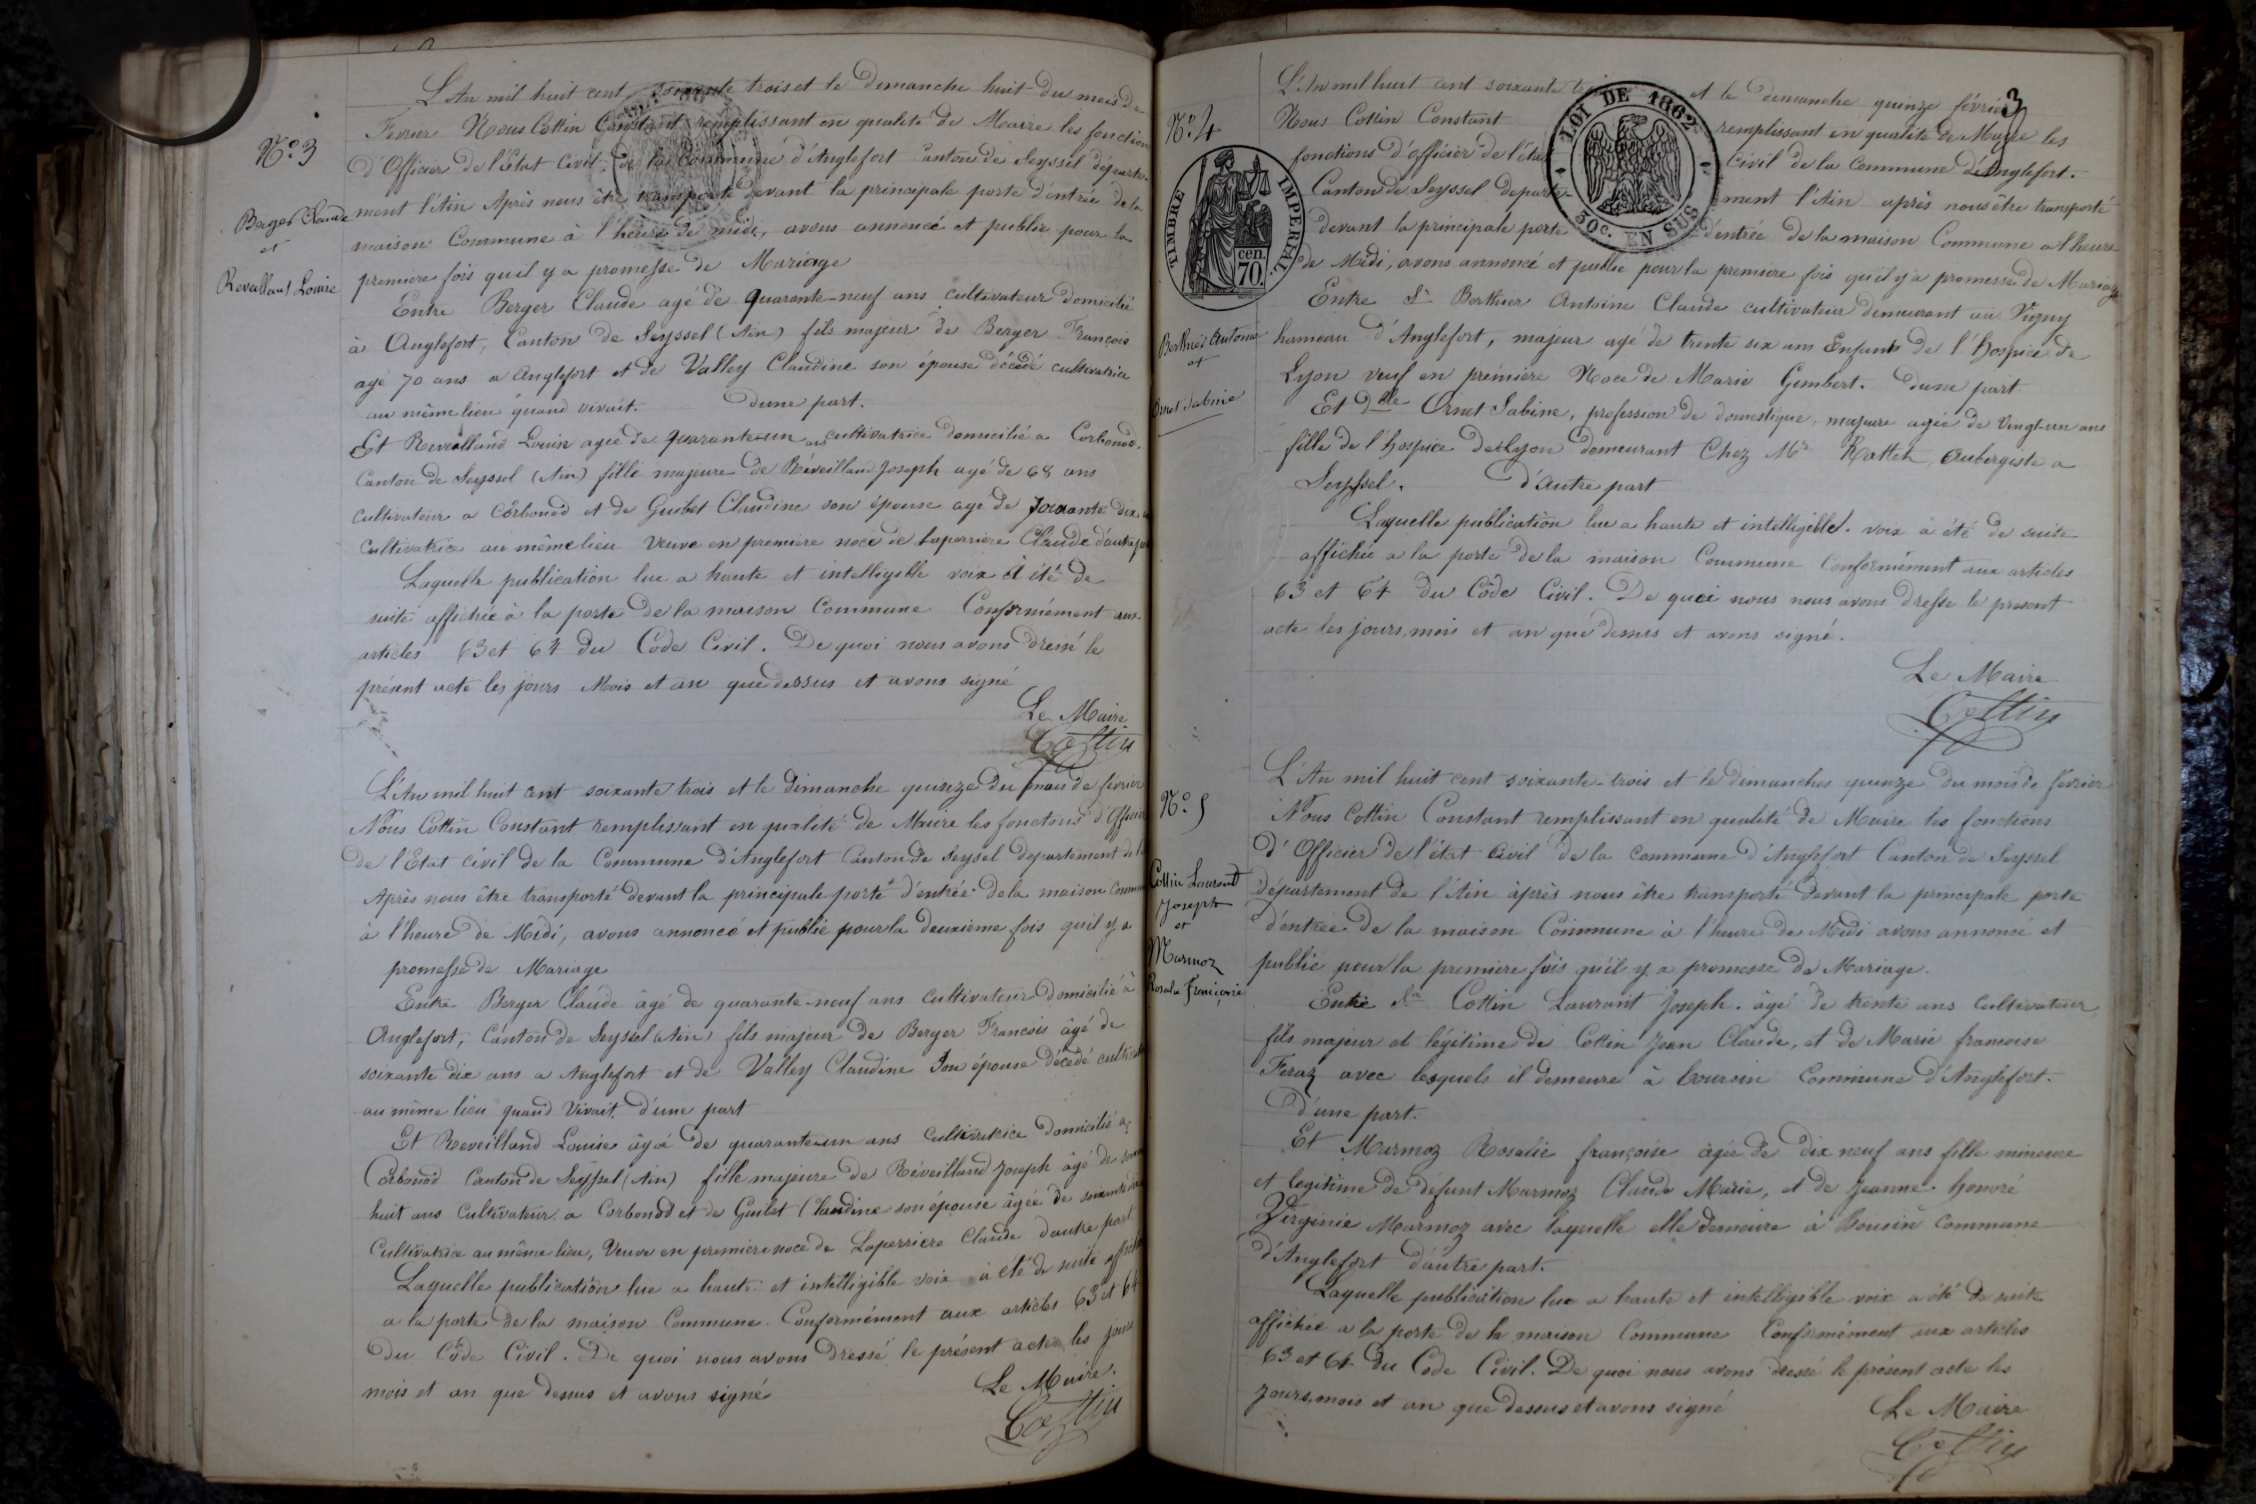 L'An mil huit cent soixante trois et le Dimanche huit du mois de
Fevrier Nous Cottin Constant remplissant en qualité de Maire les fonctions
N° 3
d'Officier de l'état Civil de la Commune d'Anglefort Canton de Seyssel départe-
ment l'Ain Après nous être transporté devant la principale porte d'entrée de la
Berger Claude
et
Revellaud Louise
maison Commune à l'heure de midi, avons annoncé et publié pour la
première fois qu'il y a promesse de Mariage
Entre Berger Claude agé de quarante-neuf ans cultivateur domicilié
à Anglefort, Canton de Seyssel (Ain) fils majeur de Berger François
agé 70 ans a Anglefort et de Valley Claudine son épouse décédé cultivatrice
au même lieu quand vivait. d'une part.
Et Reveilland Louise agée de quarante-un ans cultivatrice domicilié a Corbonod.
Canton de Seyssel (Ain) fille majeure de Réveilland Joseph agé de 68 ans
cultivateur a Corbonod et de Guibet Claudine son épouse age de soixante dix
cultivatrice au même lieu Veuve en premiere noce de Laperriere Claude d'autre part
Laquelle publication lue a haute et intelligible voix a été de
suite affichée à la porte de la maison Commune Conformément aux
articles 63 et 64 du Code Civil. De quoi nous avons dressé le
présent acte les jours Mois et an que dessus et avons signé
Le Maire
Cottin
L'An mil huit cent soixante trois et le dimanche quinze du mois de fevrier
Nous Cottin Constant remplissant en qualité de Maire les fonctions d'Officier
de l'Etat civil de la Commune d'Anglefort Canton de Seyssel departement de l
Après nous être transporté devant la principale porte d'entrée de la maison Commune
à l'heure de Midi, avons annoncé et publié pour la deuxième fois qu'il y a
promesse de Mariage
Entre Berger Claude âgé de quarante-neuf ans Cultivateur domicilié à
Anglefort, Canton de Seyssel (Ain) fils majeur de Berger Francois âgé de
soixante dix ans a Anglefort et de Valley Claudine son épouse décedé cultivat
au même lieu quand Vivait. d'une part
Et Reveilland Louise âgé de quarante-un ans cultivatrice domicilié a
Corbonod Canton de Seyssel (Ain) fille majeure de Réveilland Joseph âgé de soixan
huit ans Cultivateur a Corbonod et de Guilet Claudine son épouse âgée de soixante dix
Cultivatrice au même lieu, Veuve en premiere noce de Laperriere Claude d'autre part
Laquelle publication lue a haute et intelligible voix a été de suite affich
a la porte de la maison Commune Conformément aux articles 63 et 64
du Côde Civil. De quoi nous avons dressé le présent acte les jours
mois et an que dessus et avons signé
Le Maire.
Cottin
3
L'An mil huit cent soixante tr et le dimanche quinze février
N° 4
Nous Cottin Constant remplissant en qualité de Maire les
fonctions d'officier de l'état Civil de la Commune d'Anglefort.
Canton de Seyssel départe ment l'Ain après nous être transporté
devant la principale porte d'entrée de la maison Commune a l'heure
LOI DE 1862
50c. EN SUS
TIMBRE IMPERIAL
cen. 70.
de Midi, avons annoncé et publié pour la premiere fois qu'il y a promesse de Mariage
Entre Sr Berthier Antoine Claude cultivateur demeurant au Vigny
Berthier Antoine
et
Ornet Sabine
hameau d'Anglefort, majeur agé de trente six ans Enfants de l'Hospice de
Lyon veuf en première Noce de Marie Gimbert. d'une part
Et Dlle Ornet Sabine, profession de domestique, majeure agée de vingt-un ans
fille de l'hospice de Lyon demeurant Chez Mr Rattet, Aubergiste a
Seyssel. d'autre part
Laquelle publication lue a haute et intelligible. voix a été de suite
affichée a la porte de la maison Commune Conformément aux articles
63 et 64 du Côde Civil. De quoi nous nous avons dressé le present
acte les jours, mois et an que dessus et avons signé.
Le Maire
Cottin
L'An mil huit cent soixante-trois et le dimanche quinze du mois de février
N° 5
Nous Cottin Constant remplissant en qualité de Maire les fonctions
d'Officier de l'état civil de la commune d'Anglefort Canton de Seyssel
Cottin Laurent
Joseph
et
Marmoz
Rosalie Françoise
département de l'Ain après nous être transporté devant la principale porte
d'entrée de la maison Commune à l'heure de Midi avons annoncé et
publié pour la premiere fois qu'il y a promesse de Mariage.
Entre Sr Cottin Laurant Joseph. âgé de trente ans Cultivateur
fils majeur et légitime de Cottin Jean Claude, et de Marie francoise
Feraz avec lesquels il demeure à Boursin Commune d'Anglefort.
D'une part.
Et Marmoz Rosalie françoise âgée de dix neuf ans fille mineure
et legitime de défunt Marmoz Claude Marie, et de Jeanne honoré
Virginie Marmoz avec laquelle elle demeure à Boursin Commune
d'Anglefort d'autre part.
Laquelle publication lue a haute et intelligible voix a été de suite
affichée a la porte de la maison Commune Conformément aux articles
63 et 64 du Code Civil. De quoi nous avons dressé le présent acte les
jours, mois et an que dessus et avons signé
Le Maire
Cottin